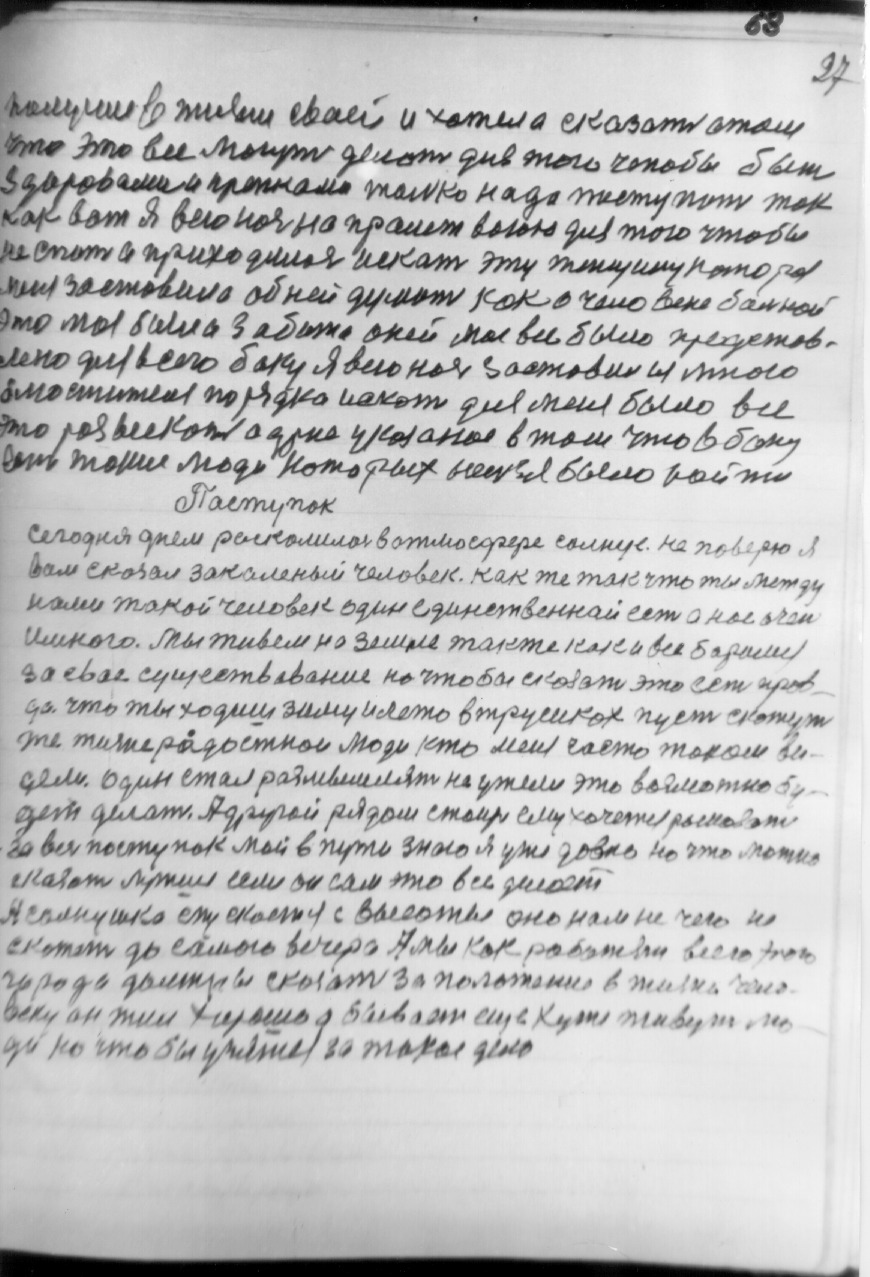 68
27
получил в жизни своей и хотела сказат этом
что это все могут делат для того чтобы быт
здоровами и крепкаме толко надо поступат так
как вот я всю ноч на пралет
не спат а приходился искат эту женщину которая
меня заставила об ней думат как о человеке
это моя была забота о ней мое все было представ-
лено для всего баку я всю ноч заставился много
порядка искат для меня было все
это а одно указаное в том что в баку
ест такие люди которых нелзя было найти
Паступок
Сегодня днем расколилос в атмосфере солнце. не поверю я
вам сказал закаленый человек. как же так что ты между
нами такой человек один единственнай ест а нас очен
много. Мы живем на земле также как и все боролис
за свое существование но чтобы сказат это ест прав-
да. что ты ходиш зиму и лето в трусиках пуст скажут
же жизнерадостнои люди кто меня часто таком ви-
дели. один стал размышлят неужели это возможно бу-
дет делат. А другой рядом стоит ему хочется расказат
за вся поступок мой в пути знаю я уже давно но что можно
сказат лутше если он сам это все делает
А солнушко спускается с высоты оно нам не чего не
скажет до самого вечера А мы как работяги всего этого
города должны сказат за положение в жизни чело-
веку он жил хорошо а бывает еще хуже живут лю-
ди но что бы узятся за такое дело